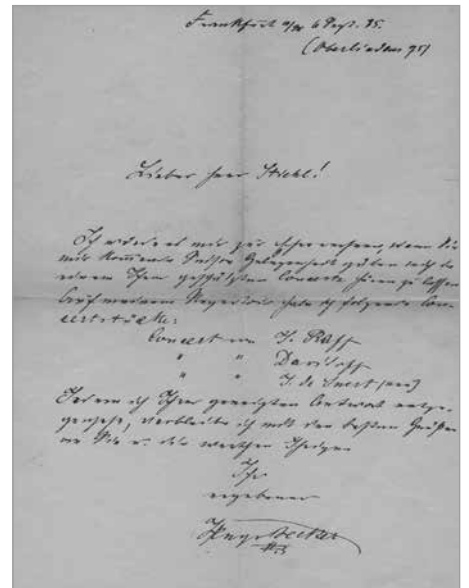 Frankfurt a/M 6 Sept. 85.
(Oberlindau 95)
Lieber Herr Stiehl!
Ich würde es mir zur Ehre rechnen, wenn Sie
mir kommende Saison Gelegenheit geben mich in
einem Ihrer geschätzten Concerte hören zu lassen
Auf meinem Repertoir habe ich folgende Con-
certstücke:
Concert von J. Raff
" " Davidoff
" " J. de Swert
Indem ich Ihrer geneigten Antwort entge-
gensehe, verbleibe ich mit den besten Grüßen
an Sie u. die werthen Ihrigen
Ihr
ergebener
Hugo Becker